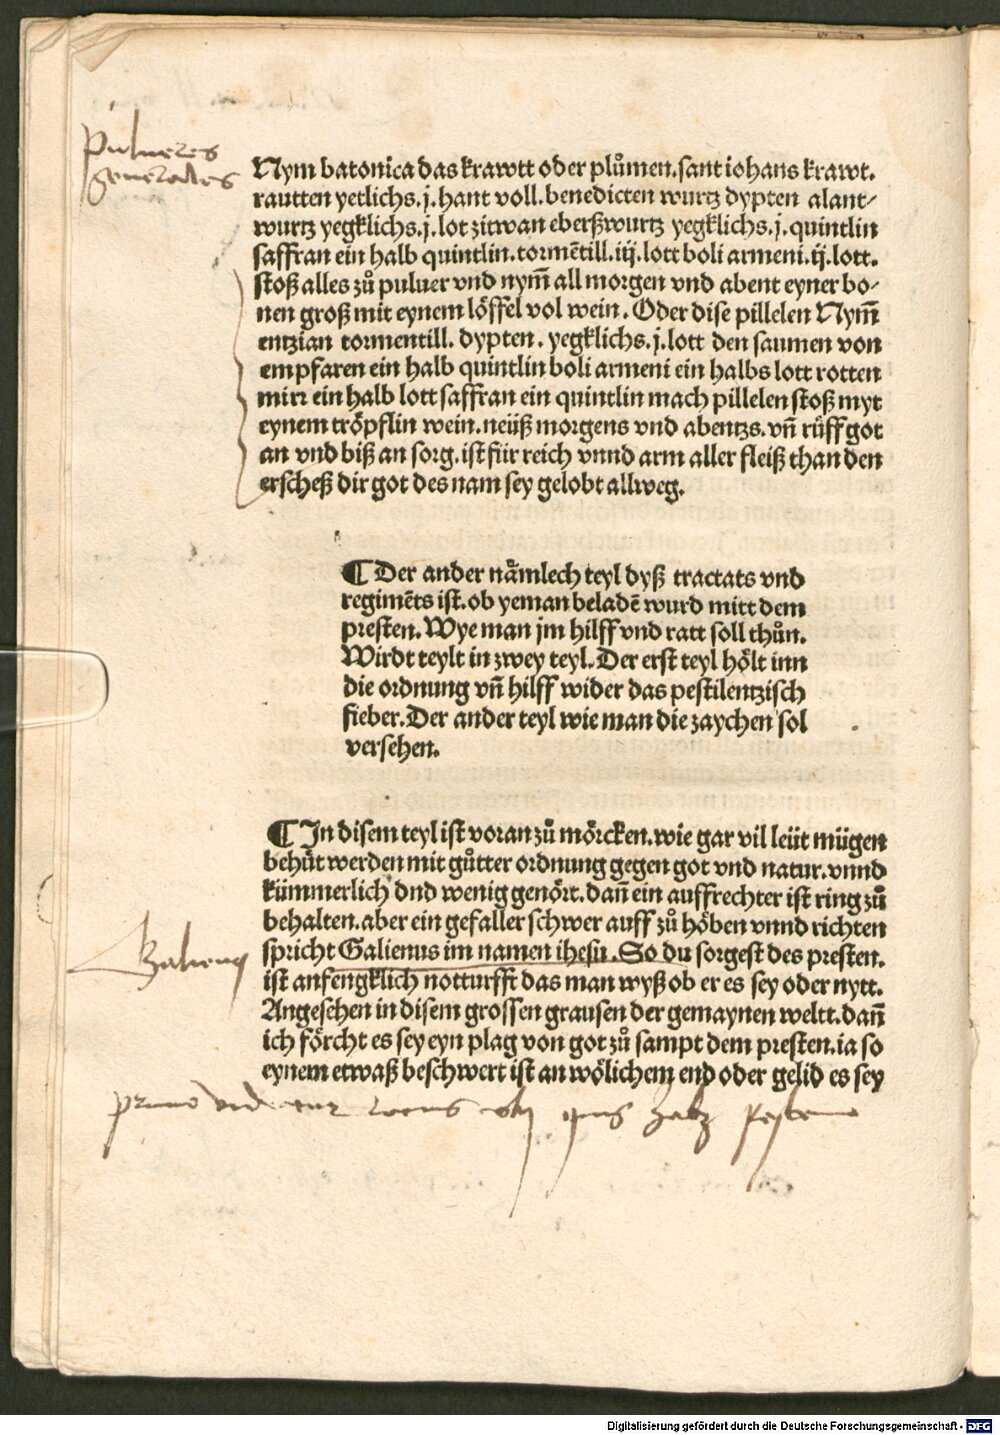 Pulueres
generales
Nym batonica das krawtt oder plůmen.sant iohans krawt.
rautten yetlichs.j.hant voll.benedicten wurtz dypten alant-
wurtz yegklichs.j.lot zitwan eberßwurtz yegklichs.j.quintlin
saffran ein halb quintlin.tormētill.iij.lott boli armeni.ij.lott.
stoß alles zů puluer vnd nym̄ all morgen vnd abent eyner bo-
nen groß mit eynem löffel vol wein. Oder dise pillelen Nym̄
entzian tormentill. dypten. yegklichs.j.lott den saumen von
empfaren ein halb quintlin boli armeni ein halbs lott rotten
mirr ein halb lott saffran ein quintlin mach pillelen stoß myt
eynem tröpflin wein.neüß morgens vnd abentzs.vn̄ rüff got
an vnd biß an sorg.ist für reich vnnd arm aller fleiß than den
erscheß dir got des nam sey gelobt allweg.
¶ Der ander nåmlech teyl dyß tractats vnd
regimēts ist.ob yeman beladē wurd mitt dem
presten.Wye man jm hilff vnd ratt soll thůn.
Wirdt teylt in zwey teyl.Der erst teyl hölt inn
die ordnung vn̄ hilff wider das pestilentzisch
fieber.Der ander teyl wie man die zaychen sol
versehen.
¶ In disem teyl ist voran zů mörcken.wie gar vil leüt mügen
behüt werden mit gůtter ordnung gegen got vnd natur.vnnd
kümmerlich dnd wenig genört.dan̄ ein auffrechter ist ring zů
behalten.aber ein gefaller schwer auff zů höben vnnd richten
spricht Galienus im namen ihesu.So du sorgest des presten.
Galienus
ist anfengklich notturfft das man wyß ob er es sey oder nytt.
Angesehen in disem grossen grausen der gemaynen weltt.dan̄
ich förcht es sey eyn plag von got zů sampt dem presten.ia so
eynem etwaß beschwert ist an wölichem end oder gelid es sey
primo videatur locus vbi quis habz pestem
Digitalisierung gefördert durch die Deutsche Forschungsgemeinschaft - DFG